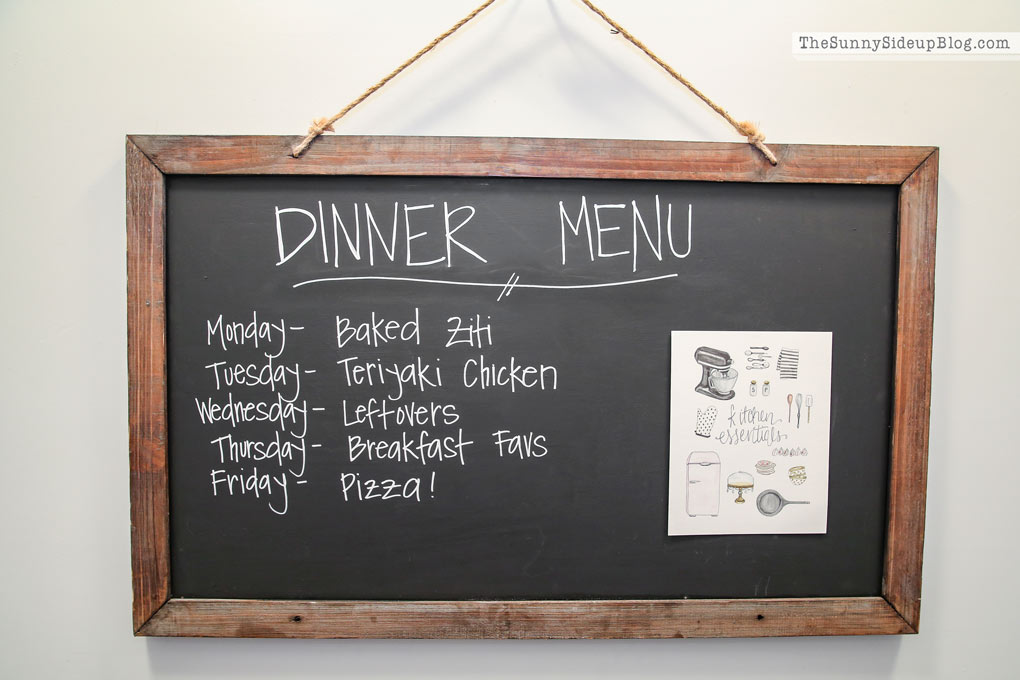 TheSunnySideupBlog.com
DINNER MENU
Monday- Baked Ziti
Tuesday- Teriyaki Chicken
Wednesday- Leftovers
Thursday- Breakfast Favs
Friday- Pizza!
S P
kitchen
essentials